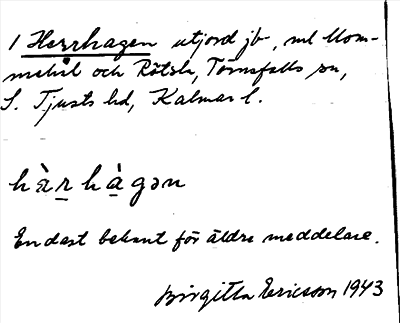 1 Herrhagen utjord jb, ml Mom-
mehål och Rötsle, Törnsfalls sn,
S. Tjusts hd, Kalmar l.
hàr̲ hà̲gən
Endast bekant för äldre meddelare.
Birgitta Ericsson 1943